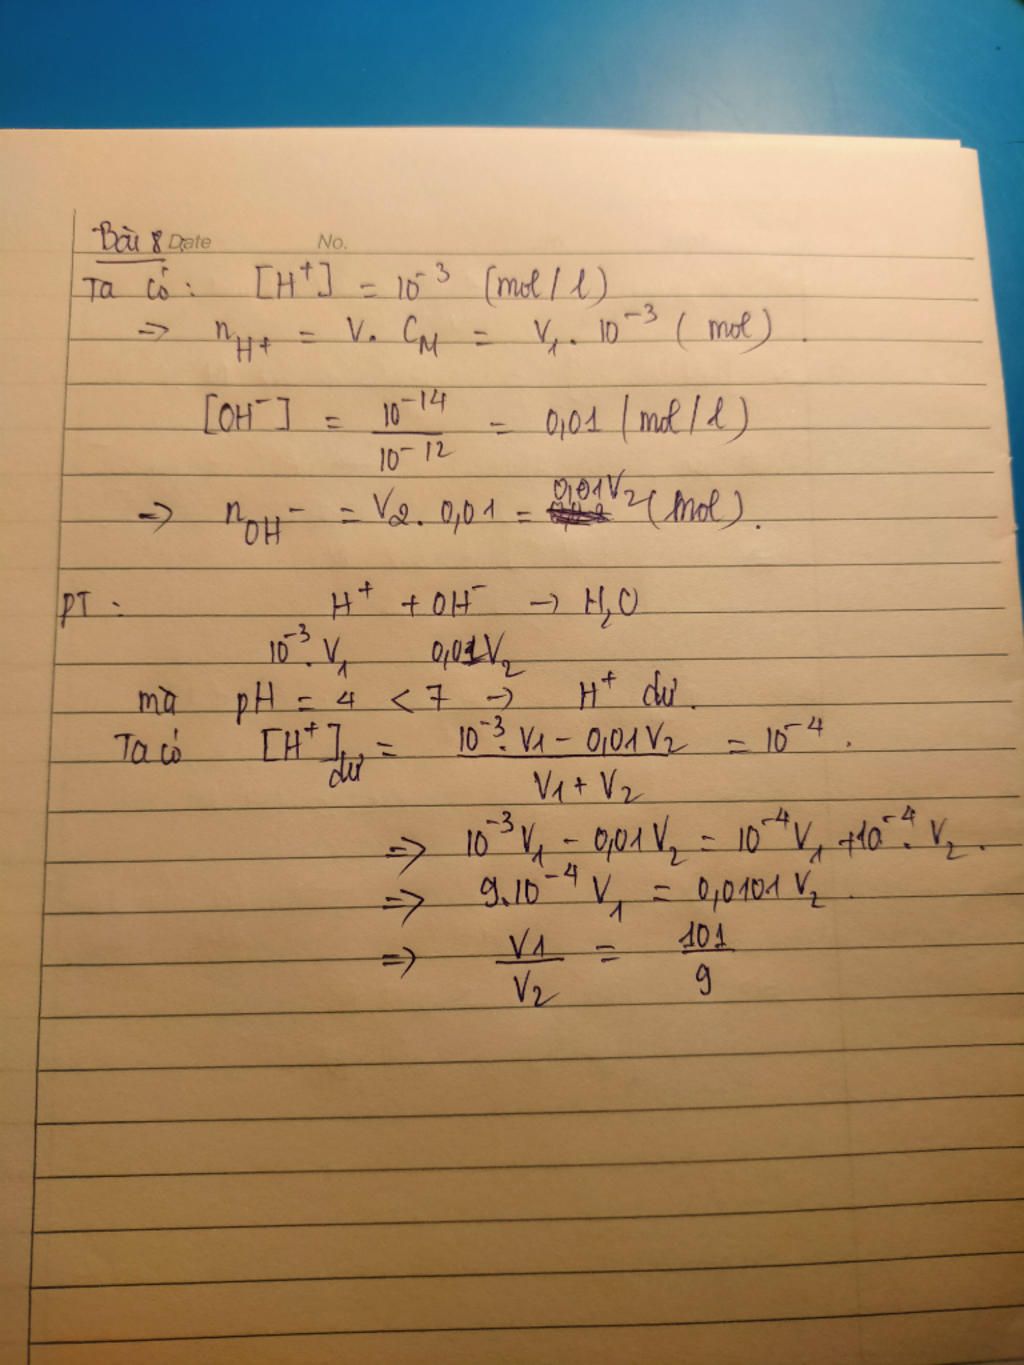 Bài 8 Date No.
Ta có: [H⁺] = 10⁻³ (mol/l)
=> n_H⁺ = V. C_M = V₁. 10⁻³ (mol).
[OH⁻] = 10⁻¹⁴/10⁻¹² = 0,01 (mol/l)
=> n_OH⁻ = V₂. 0,01 = 0,01V₂ (mol).
PT: H⁺ + OH⁻ → H₂O
10⁻³.V₁ 0,01V₂
mà pH = 4 < 7 → H⁺ dư.
Ta có [H⁺]dư = (10⁻³.V₁ - 0,01V₂)/(V₁ + V₂) = 10⁻⁴.
=> 10⁻³V₁ - 0,01V₂ = 10⁻⁴V₁ + 10⁻⁴.V₂.
=> 9.10⁻⁴V₁ = 0,0101V₂.
=> V₁/V₂ = 101/9